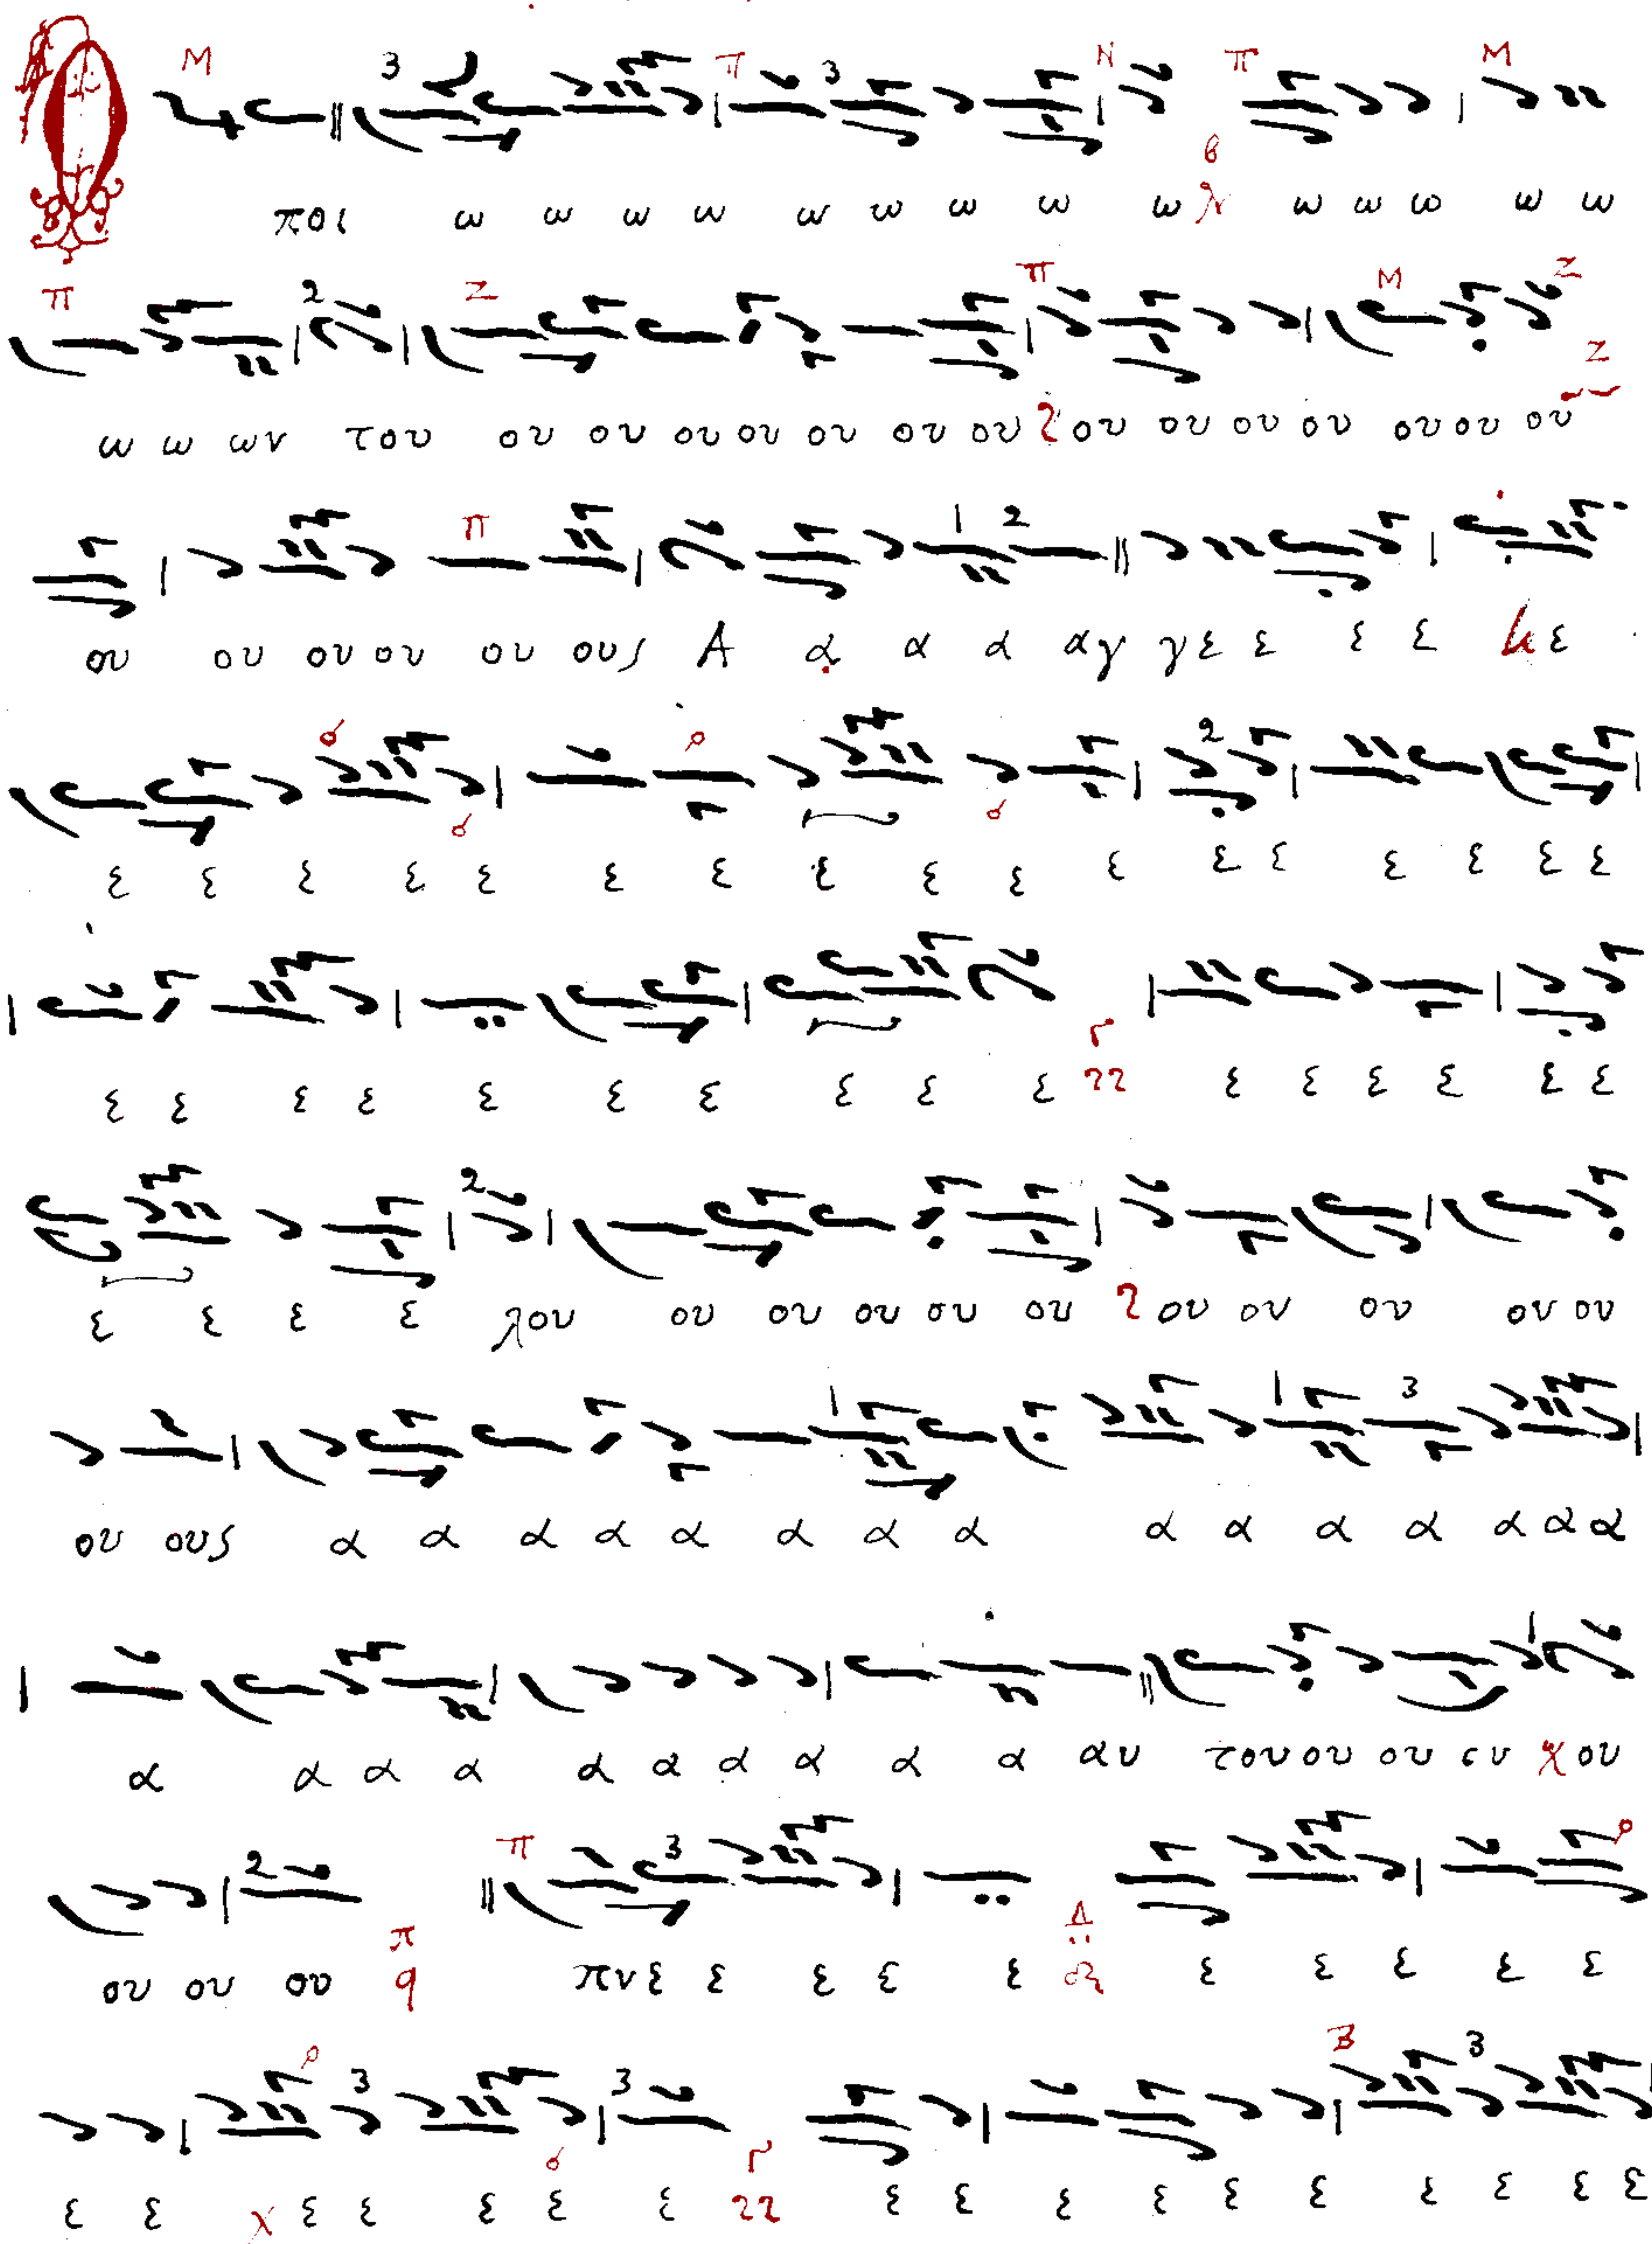 Ο ποι ω ω ω ω ω ω ω ω ω ω ω ω ω ω
ω ω ων του ου ου ου ου ου ου ου ου ου ου ου ου ου ου
ου ου ου ου ου ους Α α α α αγ γε ε ε ε ε
ε ε ε ε ε ε ε ε ε ε ε ε ε ε ε ε ε
ε ε ε ε ε ε ε ε ε ε ε ε ε ε ε ε
ε ε ε ε λου ου ου ου ου ου ου ου ου ου ου
ου ους α α α α α α α α α α α α α α α
α α α α α α α α α α αυ του ου ου ου ου
ου ου ου πνε ε ε ε ε ε ε ε ε ε
ε ε ε ε ε ε ε ε ε ε ε ε ε ε ε ε